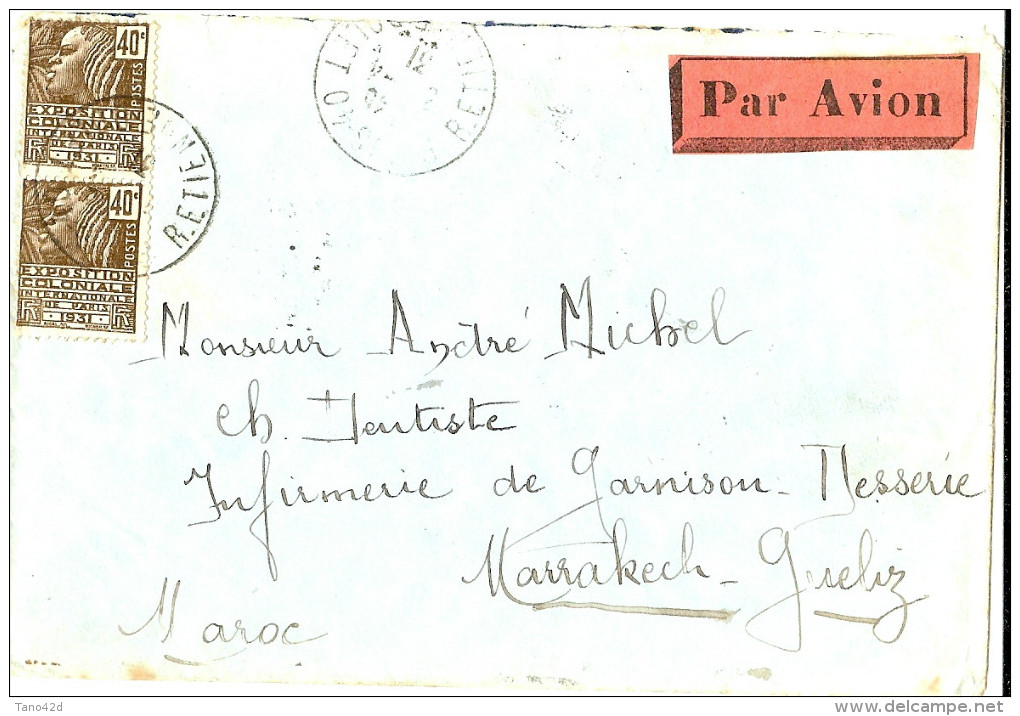 40c
POSTES
EXPOSITION
COLONIALE
INTERNATIONALE
DE PARIS
1931
40c
POSTES
EXPOSITION
COLONIALE
INTERNATIONALE
DE PARIS
1931
R.ETIEN
R.ET
Par Avion
Monsieur André Michel
ch. Dentiste
Infirmerie de Garnison - Messerie
Marrakech - Gueliz
Maroc
Tano42d
delcampe.net